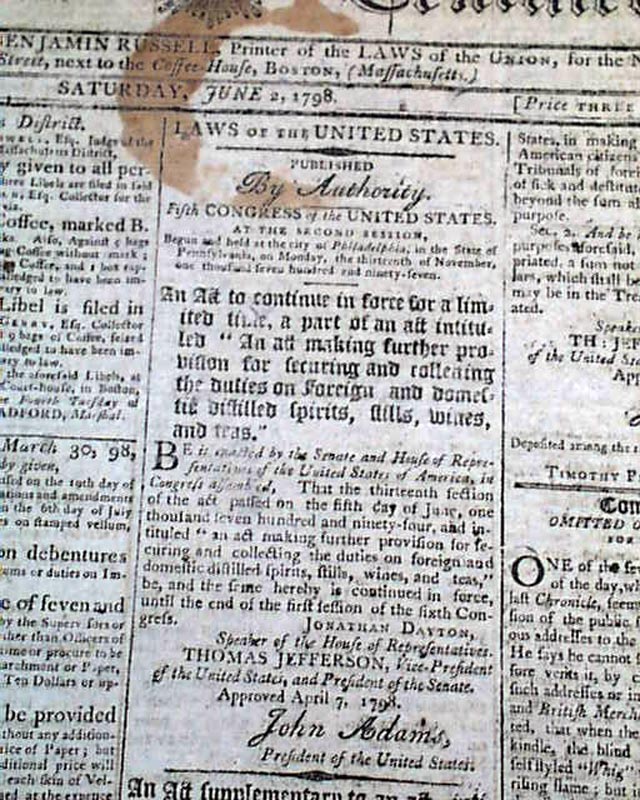 Centinel
BENJAMIN RUSSELL, Printer of the LAWS of the UNION, for the N
Street, next to the Coffee-House, BOSTON, (Massachusetts.)
SATURDAY, JUNE 2, 1798.
[Price THREE
s District.
Esq. Judge of the
Massachusetts District,
y given to all per-
three Libels are filed in said
Esq. Collector for the
Coffee, marked B.
Also, Against 9 bags
Coffee without mark;
Coffee, and 1 box
alledged to have been im-
ary to law.
Libel is filed in
GERRY, Esq. Collector
9 bags of Coffee, seized
alledged to have been im-
ry to law.
the aforesaid Libels, at
Court-house, in Boston,
Fourth Tuesday of
ADFORD, Marshal.
March 30, 98,
by given,
assed on the 19th day of
ations and amendments
n the 6th day of July
es on stamped vellum,
on debentures
ums or duties on Im-
e of seven and
by the Supervisors or
ther than Officers of
some or procure to be
archment or Paper,
Ten Dollars or up-
be provided
thout any addition-
rice of Paper; but
ditional price will
each skin of Vel-
ed at the expence
LAWS OF THE UNITED STATES.
PUBLISHED
By Authority.
Fifth CONGRESS of the UNITED STATES.
AT THE SECOND SESSION,
Begun and held at the city of Philadelphia, in the State of
Pennsylvania, on Monday, the thirteenth of November,
one thousand seven hundred and ninety-seven.
An Act to continue in force for a lim-
ited time, a part of an act intitu-
led " An act making further pro-
vision for securing and collecting
the duties on Foreign and domes-
tic distilled spirits, stills, wines,
and teas."
BE it enacted by the Senate and House of Repre-
sentatives of the United States of America, in
Congress assembled, That the thirteenth section
of the act passed on the fifth day of June, one
thousand seven hundred and ninety-four, and in-
tituled " an act making further provision for se-
curing and collecting the duties on foreign and
domestic distilled spirits, stills, wines, and teas,"
be, and the same hereby is continued in force,
until the end of the first session of the sixth Con-
gress.
JONATHAN DAYTON,
Speaker of the House of Representatives.
THOMAS JEFFERSON, Vice-President
of the United States, and President of the Senate.
Approved April 7, 1798.
John Adams,
President of the United States.
An Act supplementary to an act
States, in making
American citizens
Tribunals of forei
of sick and destitut
beyond the sum al
purpose.
Sec. 2. And be i
purposes aforesaid,
priated, a sum not
lars, which shall be
may be in the Trea
ated.
Speake
TH: JEF
of the United S
App
Deposited among the
TIMOTHY P
Com
OMITTED O
FOR
ONE of the few
of the day, w
last Chronicle, seem
sion of the public
ous addresses to the
He says he cannot
sure vents it, by
such addresses or i
and British Merch
ted, that when the
kindle, the blind
self styled "Whig"
rising flame; but i